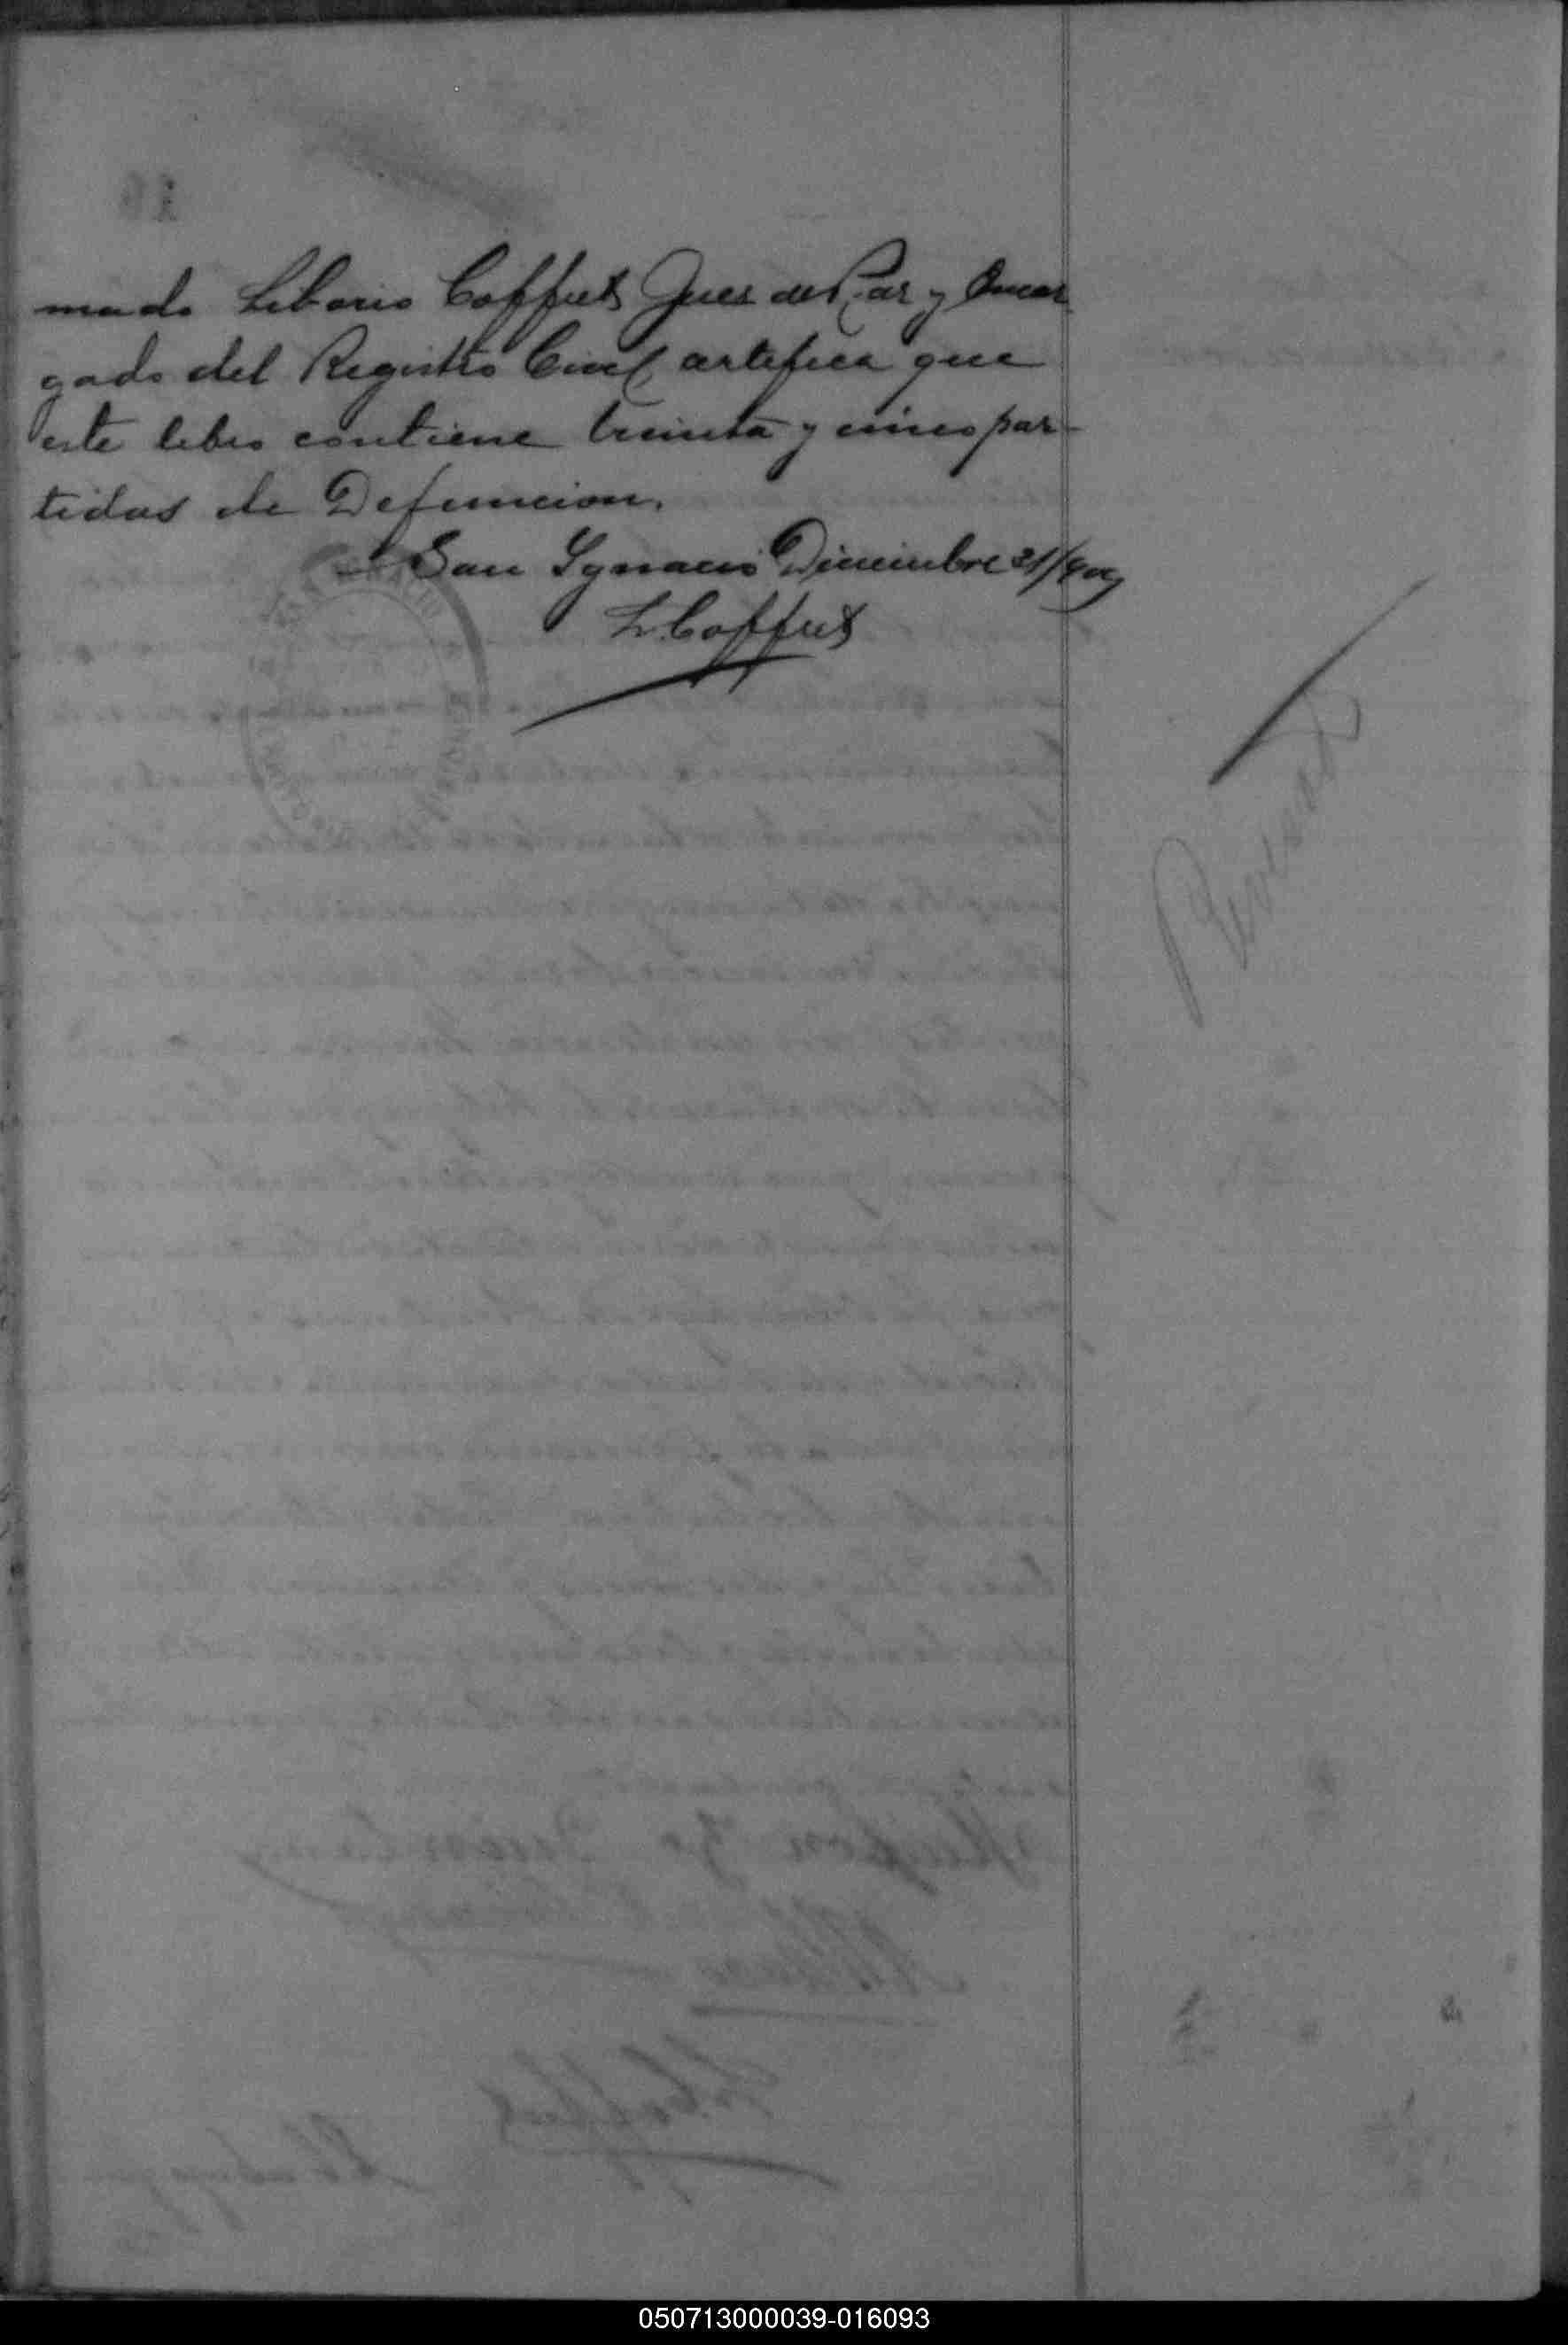 mado Liborio Coffret Juez de Paz y Encar
gado del Registro Civil, certifica que
este libro contiene treinta y cinco par-
tidas de Defuncion.
San Ygnacio Diciembre 31/909
L. Coffret
Revisado
050713000039-016093